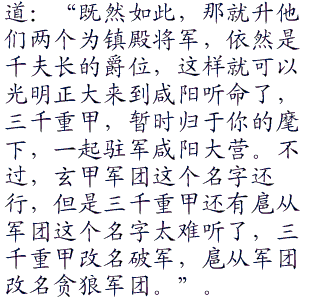 道：“既然如此，那就升他
们两个为镇殿将军，依然是
千夫长的爵位，这样就可以
光明正大来到咸阳听命了，
三千重甲，暂时归于你的麾
下，一起驻军咸阳大营。不
过，玄甲军团这个名字还
行，但是三千重甲还有扈从
军团这个名字太难听了，三
千重甲改名破军，扈从军团
改名贪狼军团。”。